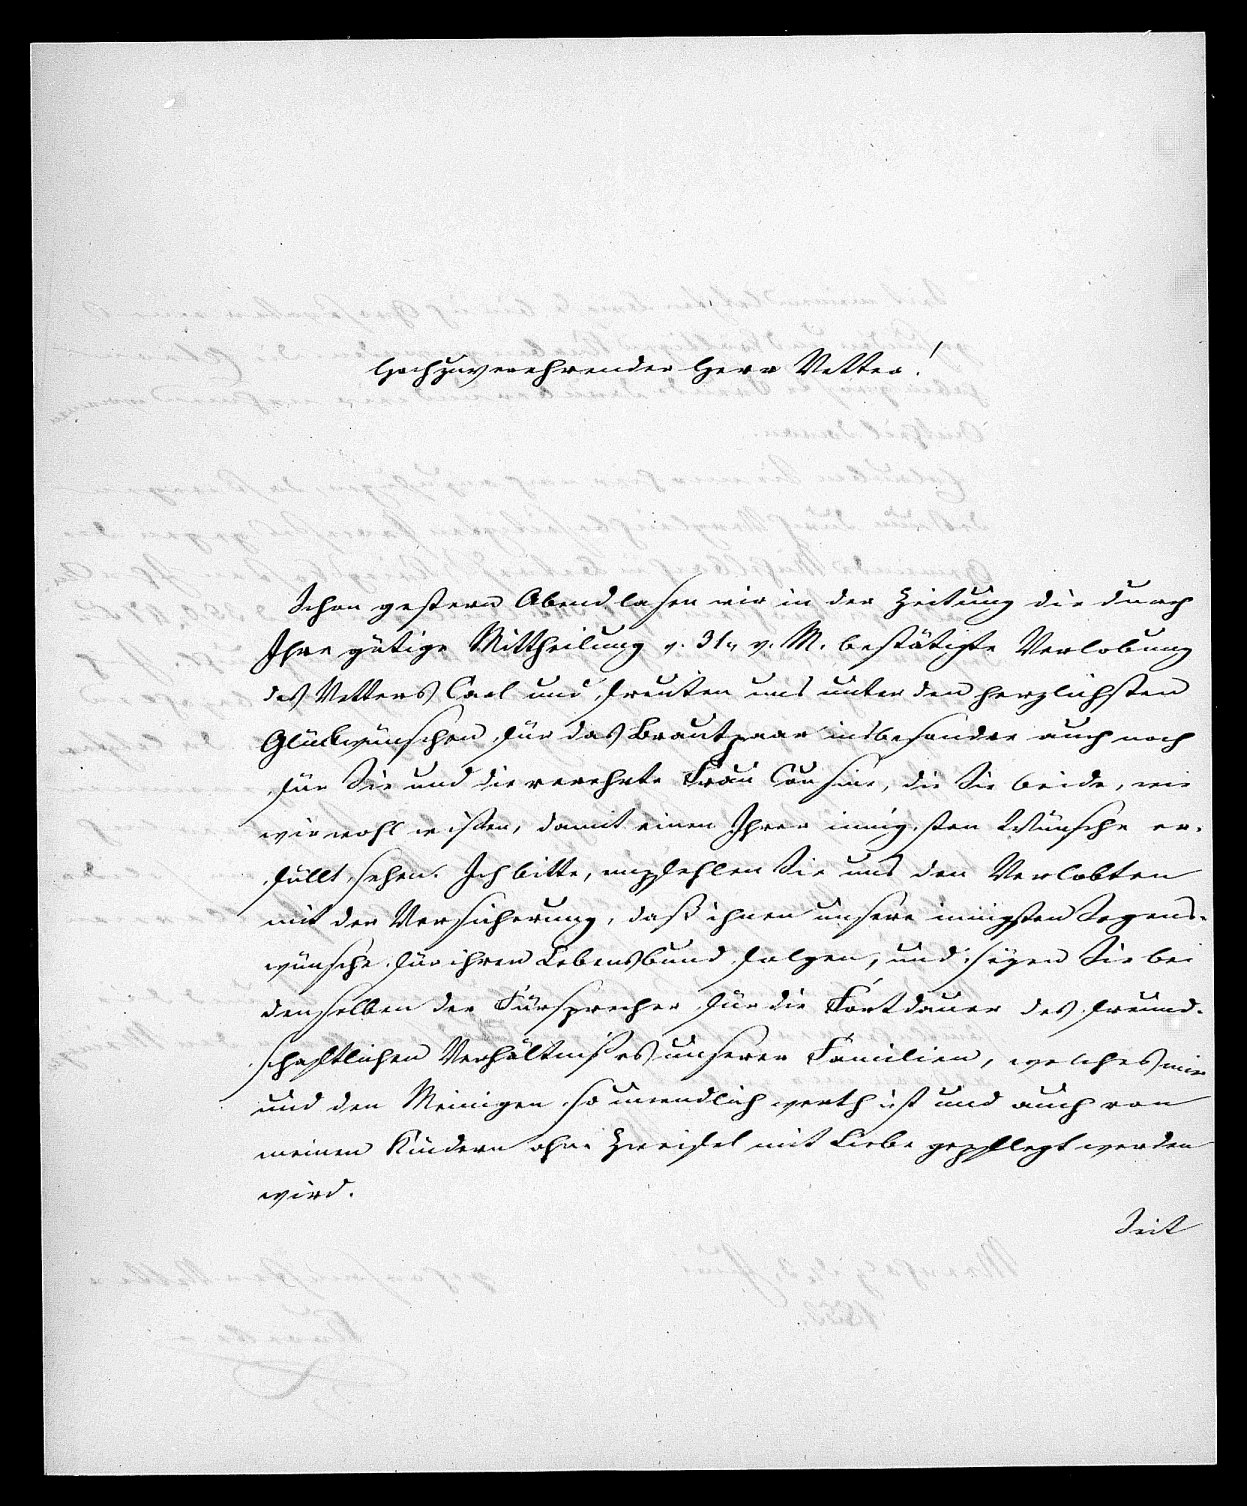 Hochzuverehrender Herr Vetter!
Schon gestern Abend lasen wir in der Zeitung die durch
Ihre gütige Mittheilung v. 31. v. M. bestätigte Verlobung
des Vetters Carl und freuten uns unter den herzlichsten
Glückwünschen für das Brautpaar insbesondre auch noch
für Sie und die verehrte Frau Cousine, die Sie beide, wie
wir wohl wissen, damit einen Ihrer innigsten Wünsche er-
füllt sehen. Ich bitte, empfehlen Sie uns den Verlobten
mit der Versicherung, daß ihnen unsere innigsten Segens-
wünsche für ihren Lebensbund folgen, und seyen Sie bei
denselben der Fürsprecher für die Fortdauer des freund-
schaftlichen Verhältnisses unserer Familien, welches mir
und den Meinigen so unendlich werth ist und auch von
meinen Kindern ohne Zweifel mit Liebe gepflegt werden
wird.
Seit